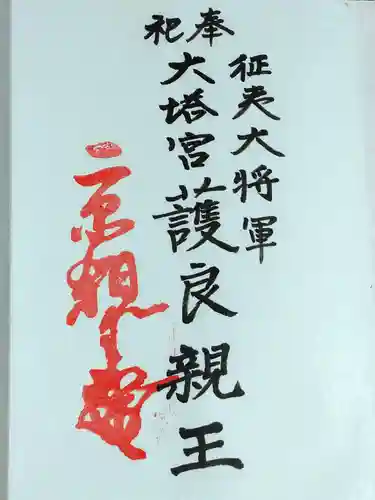 奉祀
征夷大将軍
大塔宮護良親王